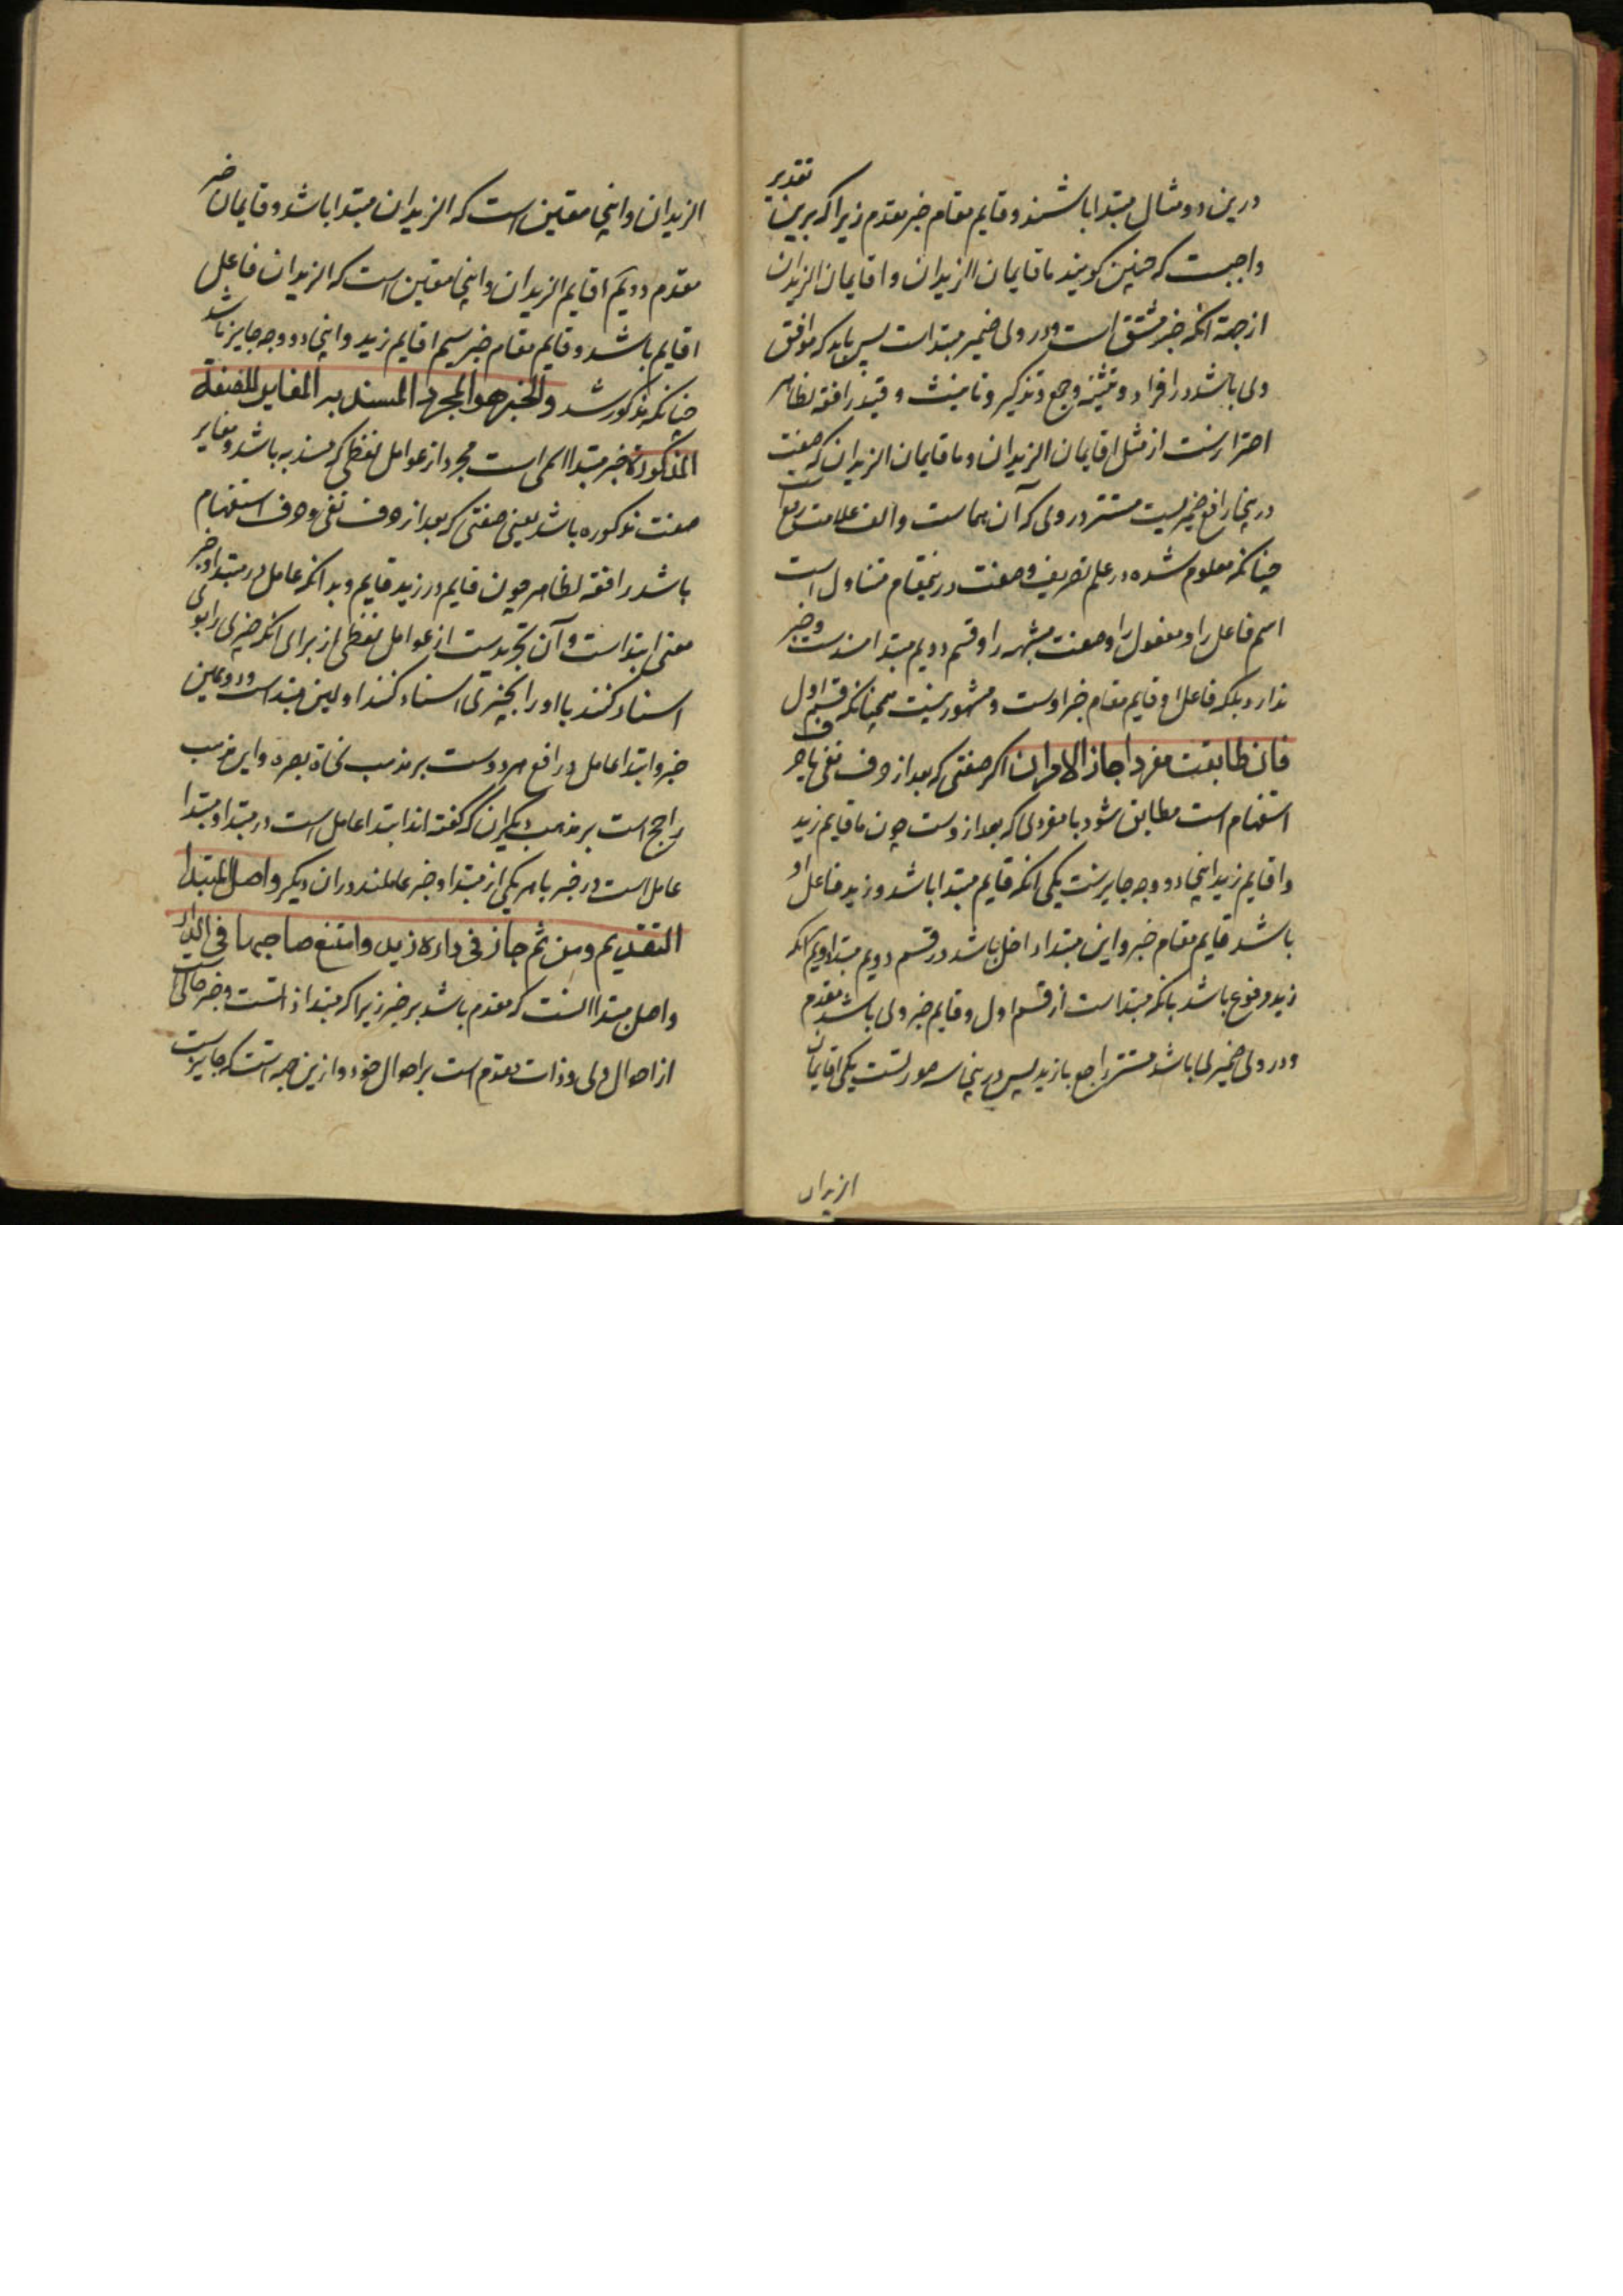 درین دو مثال مبتدا باشند و قایم مقام خبر مقدم زیرا که برین تقدیر
واجبست که چنین گویند ما قایمان الزیدان و اقایمان الزیدان
از جهة انکه خبر مشتق است و در وی ضمیر مبتداست پس باید که موافق
وی باشد در افراد و تثنیه و جمع و تذکیر و تانیث و قید رافعه لظاهر
احترازست از مثل اقایمان الزیدان و ما قایمان الزیدان که صفت
درینجا رافع ضمیریست مستتر در وی که آن هماست و الف علامت
چنانکه معلوم شده در علم تصریف و صفت درینمقام متناول است
اسم فاعل را و مفعول را و صفت مشبهه را و قسم دویم مبتدا مسندست و خبر
ندارد بلکه فاعل او قایم مقام خبر اوست و مشهور نیست همچنانکه قسم اول
فان طابقت مفردا جاز الامران اگر صفتی که بعد از حرف نفی یا حرف
استفهام است مطابق شود با مفردی که بعد ازوست چون ما قایم زید
و اقایم زید اینجا دو وجه جایزست یکی انکه قایم مبتدا باشد و زید فاعل او
باشد قایم مقام خبر و این مبتدا داخل باشد در قسم دویم مبتدا دویم آنکه
زید مرفوع باشد بانکه مبتداست از قسم اول و قایم خبر وی باشد مقدم
و در وی ضمیری باشد مستتر راجع بازید پس درینجا سه صورتست یکی اقایمان
الزیدان
الزیدان و اینجا معین است که الزیدان مبتدا باشد و قایمان خبر
مقدم دویم اقایم الزیدان و اینجا معین است که الزیدان فاعل
اقایم باشد و قایم مقام خبر سیم اقایم زید و اینجا دو وجه جایز باشد
چنانکه مذکور شد والخبر هو المجرد المسند به المغایر للصفة
المذکورة خبر مبتدا اسمی است مجرد از عوامل لفظی که مسند به باشد و مغایر
صفت مذکوره باشد یعنی صفتی که بعد از حرف نفی و حرف استفهام
باشد رافعه لظاهر چون قایم در زید قایم و بدانکه عامل در مبتدا و خبر
معنی ابتداست و آن تجریدست از عوامل لفظی از برای انکه چیزی را بوی
اسناد کنند یا او را بچیزی اسناد کنند اولین مبتداست و دویمین
خبر و ابتدا عامل رافع هر دوست بر مذهب نحاة بصره و این مذهب
راجح است بر مذهب دیگران که گفته اند ابتدا عامل است در مبتدا و مبتدا
عامل است در خبر یا هر یکی از مبتدا و خبر عاملند در ان دیگر واصل المبتدا
التقدیم ومن ثم جاز فی داره زید وامتنع صاحبها فی الدار
و اصل مبتدا آنست که مقدم باشد بر خبر زیرا که مبتدا ذاتست و خبر حالی است
از احوال وی و ذات مقدم است بر احوال خود و ازین جهتست که جایزست